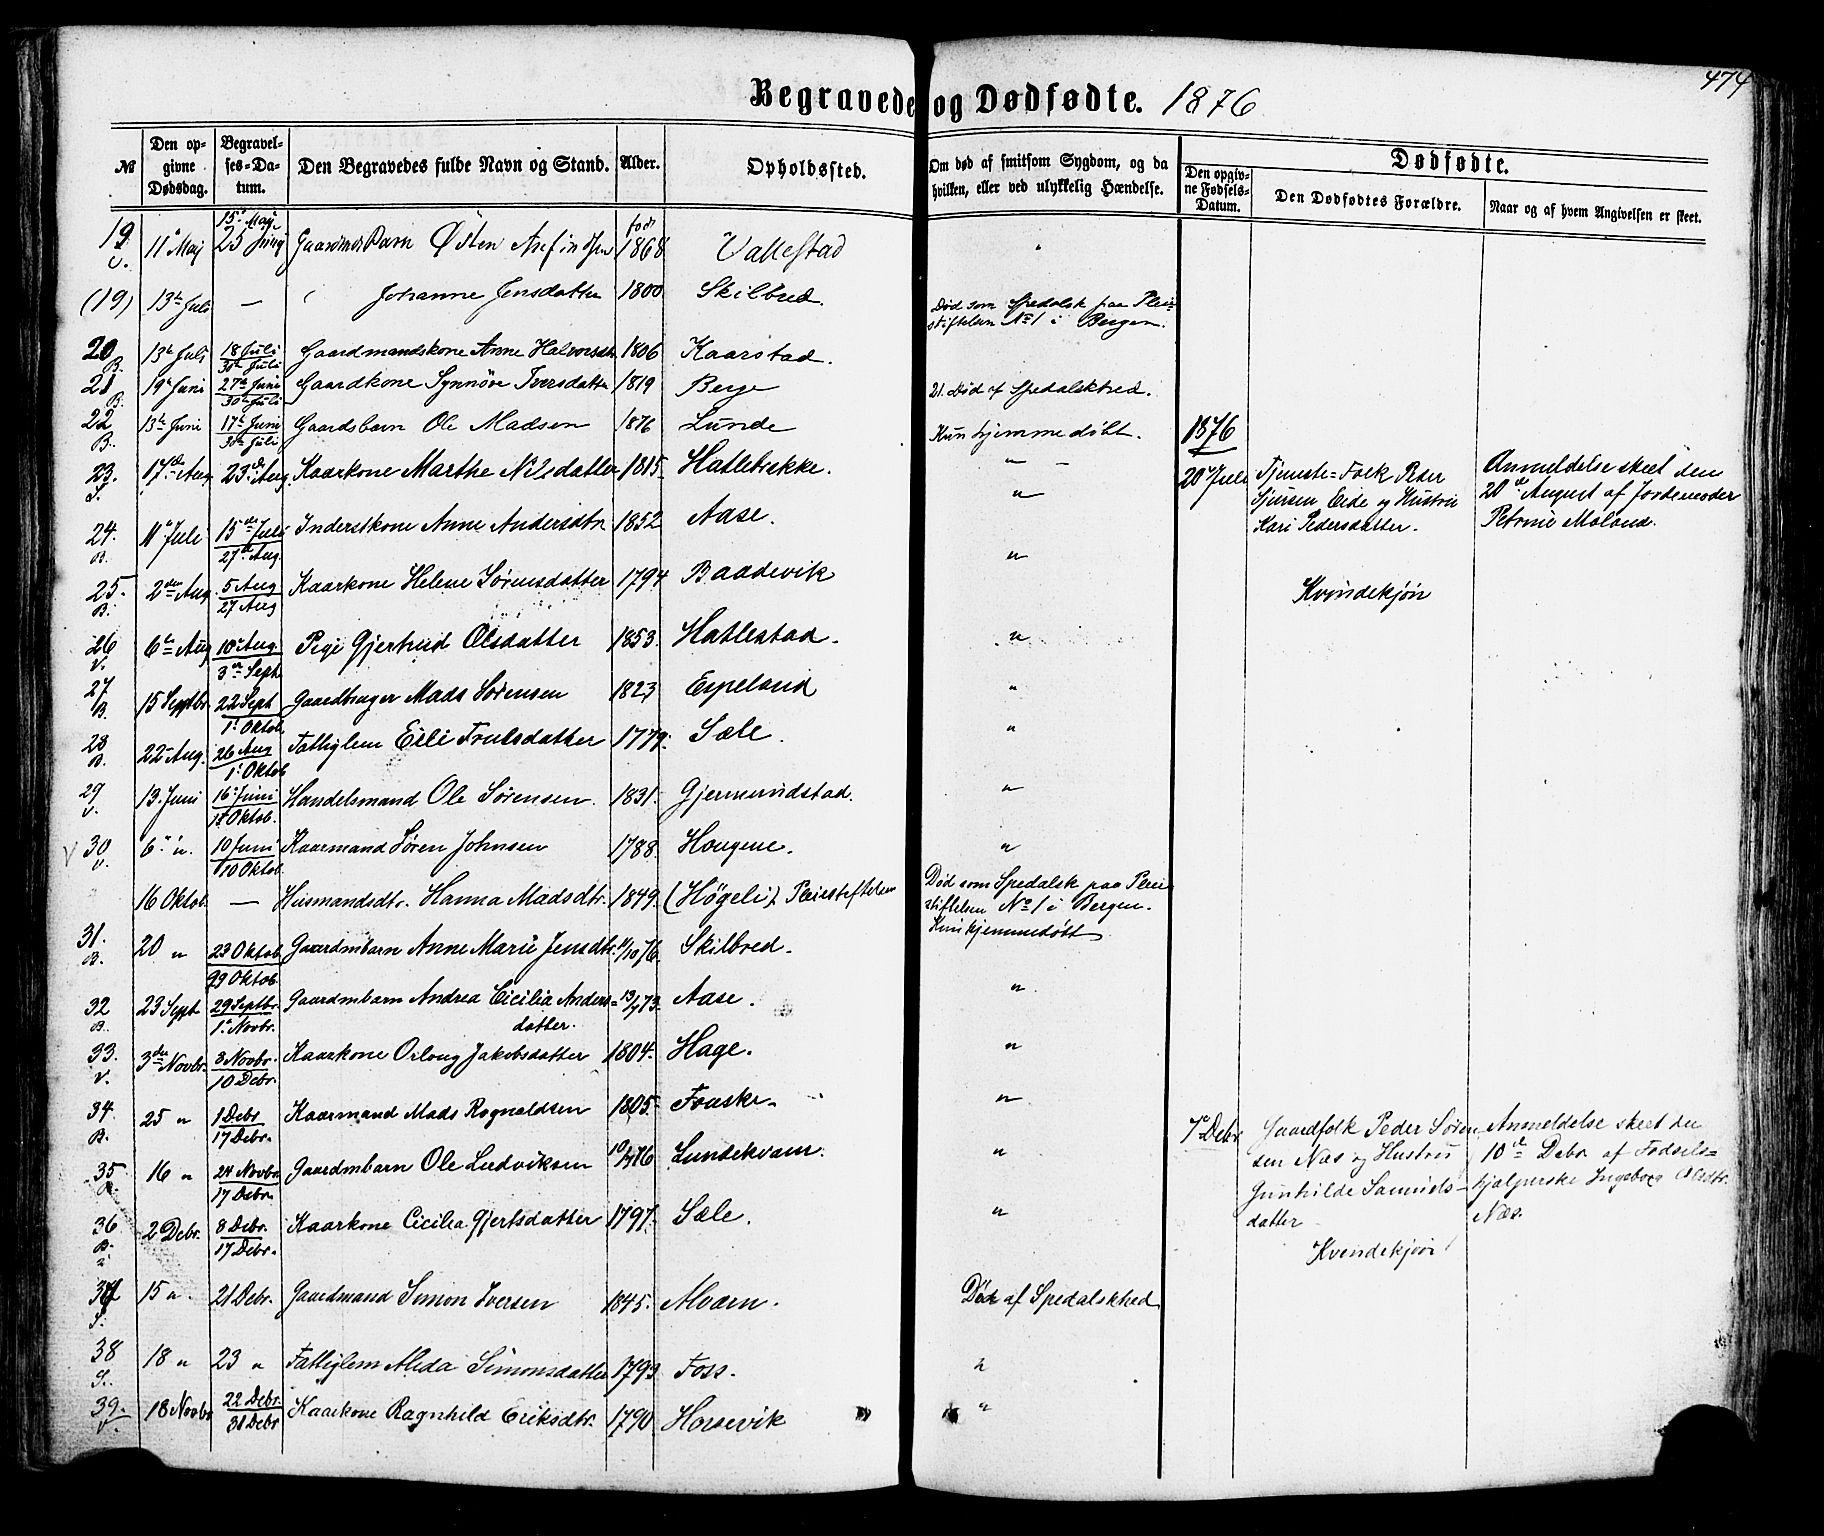 474
Begravede og Dødfødte. 1876
№ Den opgivne Dødsdag. Begravelses-Datum. Den Begravedes fulde Navn og Stand. Alder. Opholdssted. Om død af smitsom Sygdom, og da hvilken, eller ved ulykkelig Hændelse. Dødfødte. Den opgivne Fødsels-Datum. Den Dødfødtes Forældre. Naar og af hvem Angivelsen er skeet.
19 V. 11 Maj 15 Maj 25 Juny Gaardmds Barn Østen Arfindsen fød 1868 Vallestad "
(19) 13de Juli — " Johanne Jensdatter 1800 Skilbred. Død som Spedalsk paa Pleiestiftelsen No 1 i Bergen.
20 B. 13de Juli 18 Juli 30te Juli Gaardmandskone Anne Halvorsdtr 1806 Kaarstad.
21 B. 19de Juni 27de Juni 30te Juli Gaardkone Synnøve Iversdatter 1819 Berge 21. Død af Spedalskhed.
22 B. 13de Juni 17de Juni 30te Juli Gaardsbarn Ole Madsen 1876 Lunde Kun hjemmedøbt.
1876
23. S. 17de Aug 23de Aug. Kaarkone Marthe Nilsdatter 1815. Hatlebrekke. " —
20 Juli Tjeneste-Folk Peder Sjursen Eide og Hustru Kari Pedersdatter. Anmeldelse skeet den 20de August af Jordemoder Petrine Moland.
Kvindekjøn
24. B. 11 Juli 15de Juli 27de Aug Inderstkone Anne Andersdtr. 1852 Aase. "
25. B. 2den Aug 5 Aug 27 Aug Kaarkone Helene Sørensdatter 1794 Baadevik "
26 V. 6te Aug 10 Aug. 3die Sept Pige Gjertrud Olsdatter 1853. Hatlestad. "
27 B. 15 Septbr. 22 Sept 1. Oktob. Gaardbruger Mads Sørensen 1823 Espeland "
28 B. 22 Aug. 26 Aug 1. Oktob Fattiglem Eili Trulsdatter 1779. Sæle. "
29 V. 13. Juni 16. Juni 1st Oktob. Handelsmand Ole Sørensen. 1831. Gjermundstad. "
V 30 V. 6. " 10 Juni 10 Oktob. Kaarmand Søren Johnsen 1788. Hougene. "
16 Oktob. — Husmandsdtr. Hanna Madsdtr. 1849. (Høgeli) Pleiestiftelsen Død som Spedalsk paa Pleiestiftelsen No 1 i Bergen.
31. B. 20 " 23 Oktob 29 Oktob. Gaardmbarn Anne Marie Jensdtr. 11/10 76. Skilbred. Kun hjemmedøbt
32 B. 23 Sept 29 Septbr. 1. Novbr. Gaardmbarn Andrea Cicilia Andersdatter. 13/4 73. Aase. "
33. V. 3die Novbr. 3 Novbr. 10 Debr. Kaarkone Orloug Jakobsdatter 1804. Hage. "
34. B. 25 " 1 Debr 17 Debr. Kaarmand Mads Rognaldsen 1805. Fauske. "
35 B. 16 " 24 Novbr. 17 Debr. Gaardmbarn Ole Ludviksen 10/7 76 Lundekvam. "
7de Debr. Gaardfolk Peder Sørensen Næs og Hustru Gunhilde Samuelsdatter Anmeldelse skeet den 10de Debr af Fødselshjælperske Ingeborg Olsdtr. Næs.
Kvindekjøn
36 B. 2 Debr. 8 Debr. 17 Debr. Kaarkone Cicilia Gjertsdatter 1797. Sæle. "
37 S. 15 " 21 Debr. Gaardmand Simon Iversen 1845. Alværn. Død af Spedalskhed
38 S. 18 " 23 " Fattiglem Alida Simonsdatter 1793 Foss. "
39. V. 18 Novbr 22 Debr. 31 Debr Kaarkone Ragnhild Eriksdtr. 1790 Horsevik "